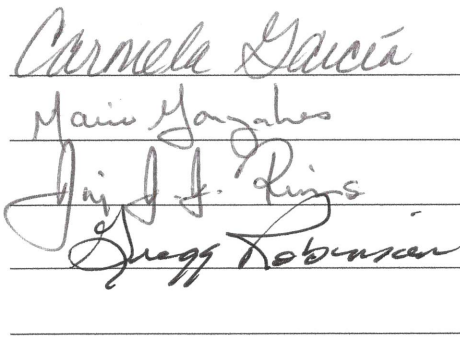 Carmela García
Mario Gonzales
J. J. Rivas
Gregg Robinson